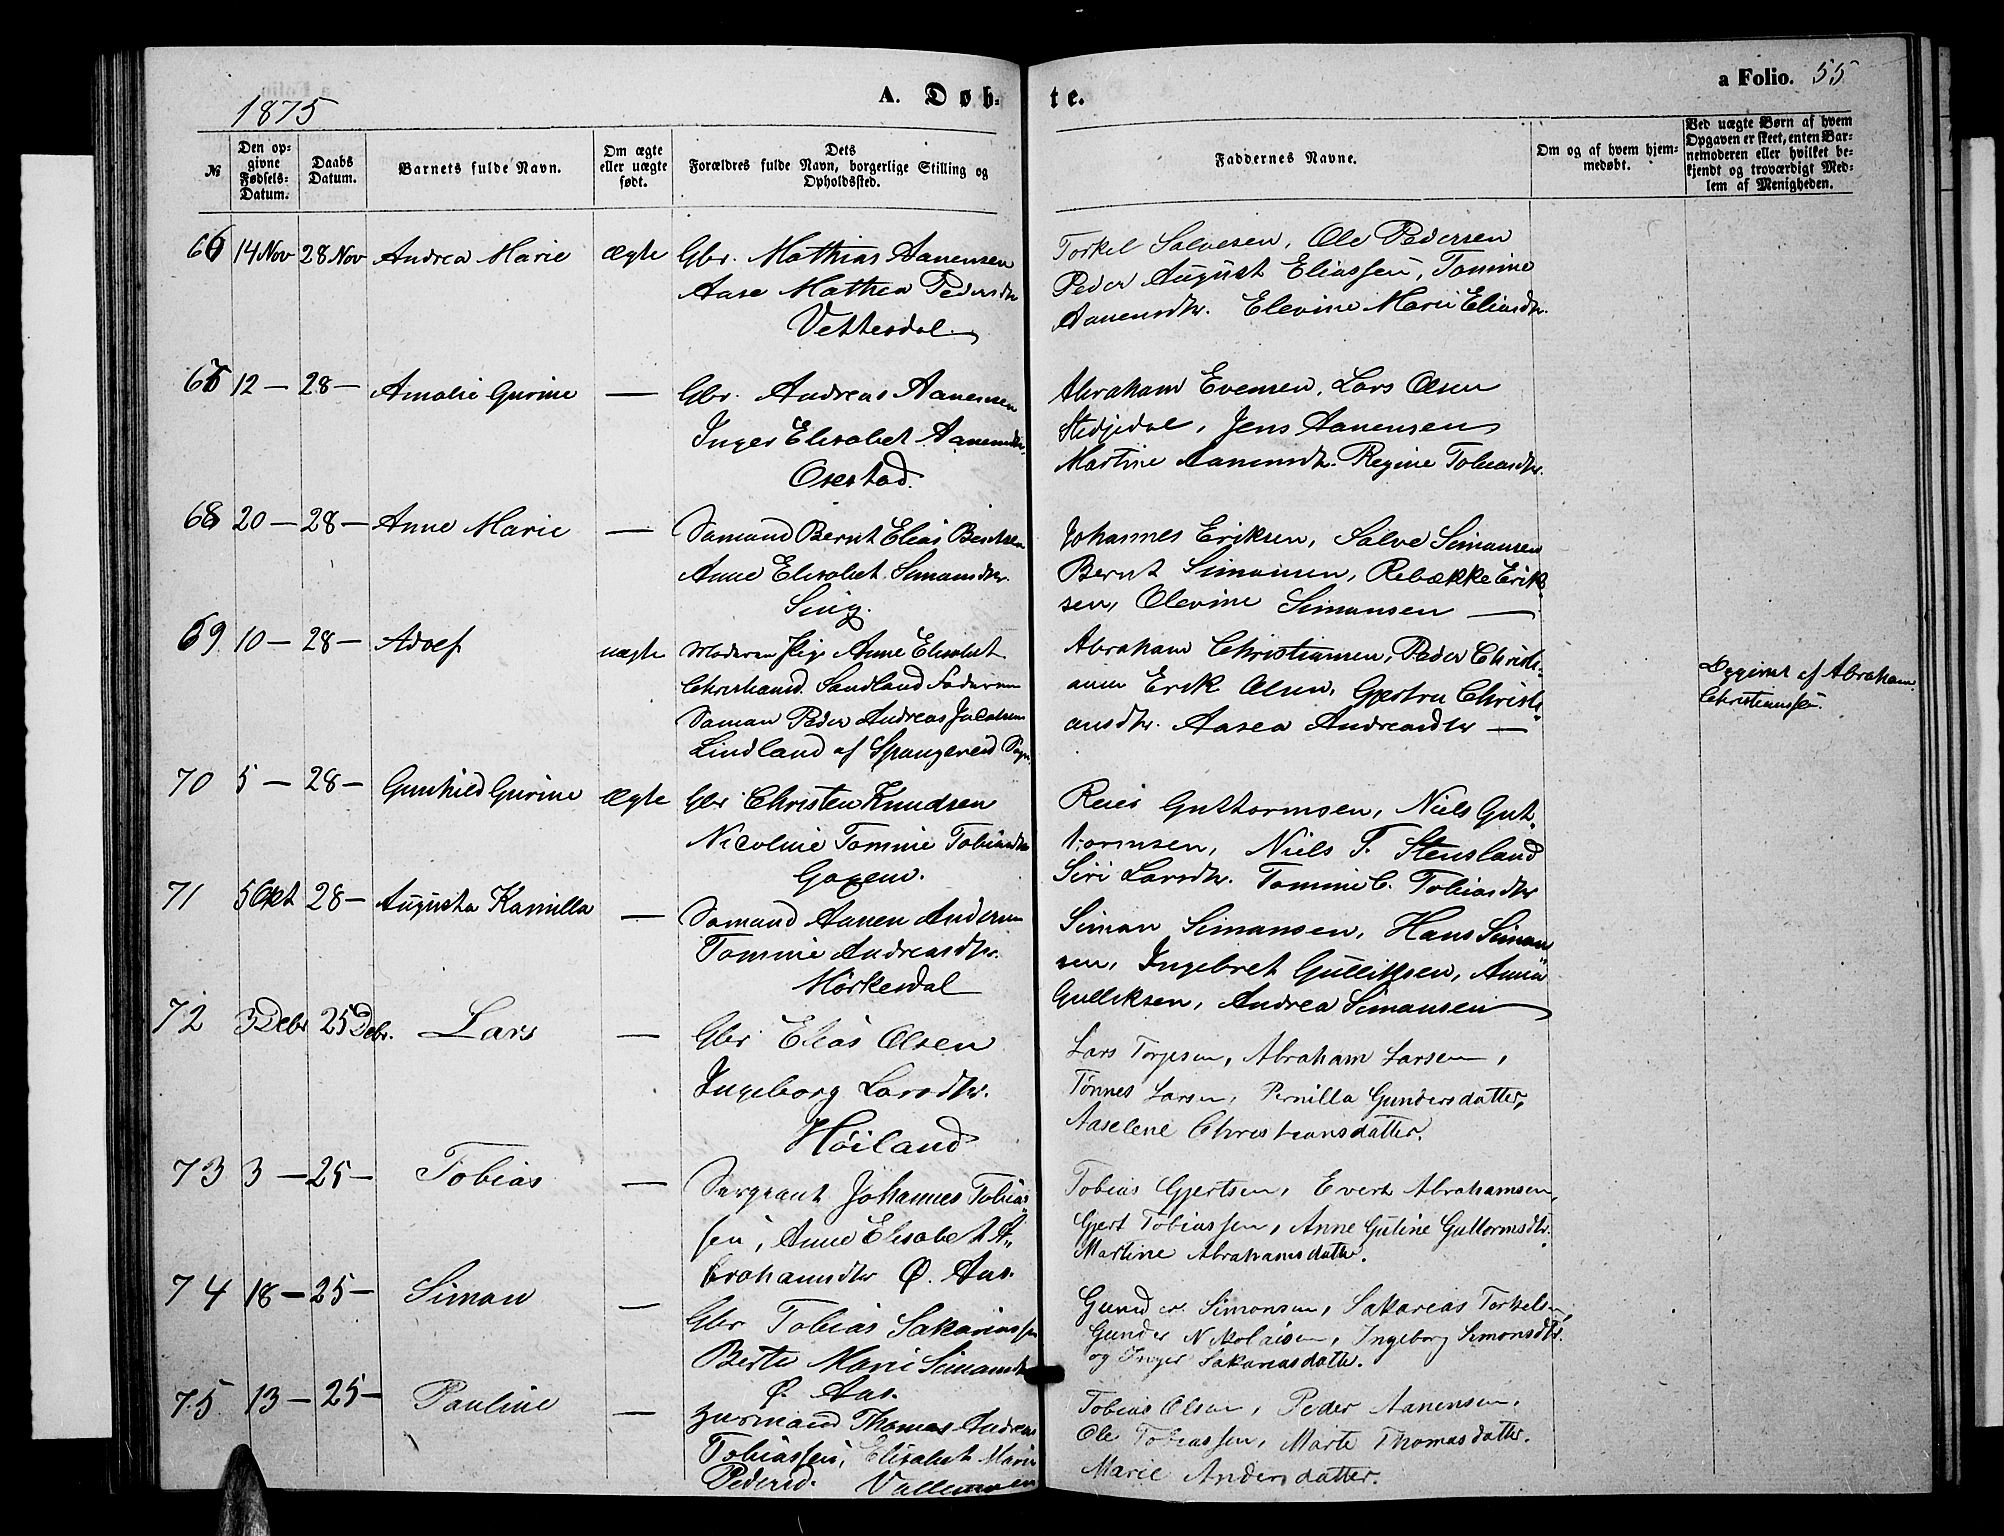 1875
A. Døb-
te.
a Folio. 55
№
Den op-
givne
Fødsels-
Datum.
Daabs
Datum.
Barnets fulde Navn.
Om ægte
eller uægte
født.
Dets
Forældres fulde Navn, borgerlige Stilling og
Opholdssted.
Faddernes Navne.
Om og af hvem hjem-
medøbt.
Ved uægte Børn af hvem
Opgaven er skeet, enten Bar-
nemoderen eller hvilket be-
kjendt og troværdigt Med-
lem af Menigheden.
66 14 Nov 28 Nov Andrea Marie ægte Gbr. Mathias Aanensen
Aase Mathea Pedersdtr
Vettesdal
Torkel Salvesen, Ole Pedersen
Peder August Eliassen, Tomine
Aanensdtr. Elevine Marie Eliasdtr.
67 12 — 28 — Amalie Gurine — Gbr. Andreas Aanensen
Inger Elisabet Aanensdtr.
Osestad.
Abraham Evensen, Lars Olsen
Stedjedal, Jens Aanensen
Martine Aanensdtr. Regine Tobiasdtr.
68 20 — 28 — Anne Marie — Sømand Bernt Elias Bentsen
Anne Elisabet Simonsdtr.
Sing.
Johannes Eriksen, Salve Simonsen
Bernt Simonsen, Rebække Erik
sen, Olevine Simonsen —
69 10 — 28 — Adolf uægte Moderen Pige Anne Elisabet
Christiansd. Sandland Faderen
Søman Peder Andreas Jacobsen
Lindland af Spangereid Sogn
Abraham Christiansen, Peder Christi-
ansen Erik Olsen, Gjertru Christi-
ansdtr. Aasea Andreasdtr —
Opgivet af Abraham
Christianssen.
70 5 — 28 — Gunhild Gurine ægte Gbr Christen Knudsen
Nicoline Tomine Tobiasdtr
Gaxem.
Reier Guttormsen, Niels Gut-
tormsen, Niels T. Stensland
Siri Larsdtr. Tomine C. Tobiasdtr
71 5 Okt 28 — Augusta Kamilla — Sømand Aanen Andersen
Tomine Andreasdtr.
Mörkesdal
Simon Simonsen, Hans Simon
sen, Ingebret Gulliksen, Anna
Gulliksen, Andrea Simonsen
72 3 Debr 25 Debr. Lars — Gbr Elias Olsen
Ingeborg Larsdtr.
Höiland
Lars Torjesen, Abraham Larsen,
Tønnes Larsen, Pernilla Gundersdatter,
Aaselene Christiansdatter.
73 3 — 25 — Tobias — Sergeant Johannes Tobias
sen, Anne Elisabet A-
brahamsdtr Ø. Aas.
Tobias Gjertsen, Evert Abrahamsen,
Gjert Tobiassen, Anne Gutine Guttormsdtr.
Martine Abrahamsdatter.
74 18 — 25 — Simon — Gbr Tobias Sakariassen
Berte Marie Simonsdtr
Ø. Aas.
Gunder Simonsen, Sakarias Torkelsen,
Gunder Nikolaisen, Ingeborg Simonsdtr.
og Inger Sakariasdatter.
75 13 — 25 — Pauline — Husmand Thomas Andreas
Tobiassen, Elisabet Marie
Pedersd. Vallemoen
Tobias Olsen, Peder Aanensen,
Ole Tobiassen, Marte Thomasdatter.
Marie Andersdatter.